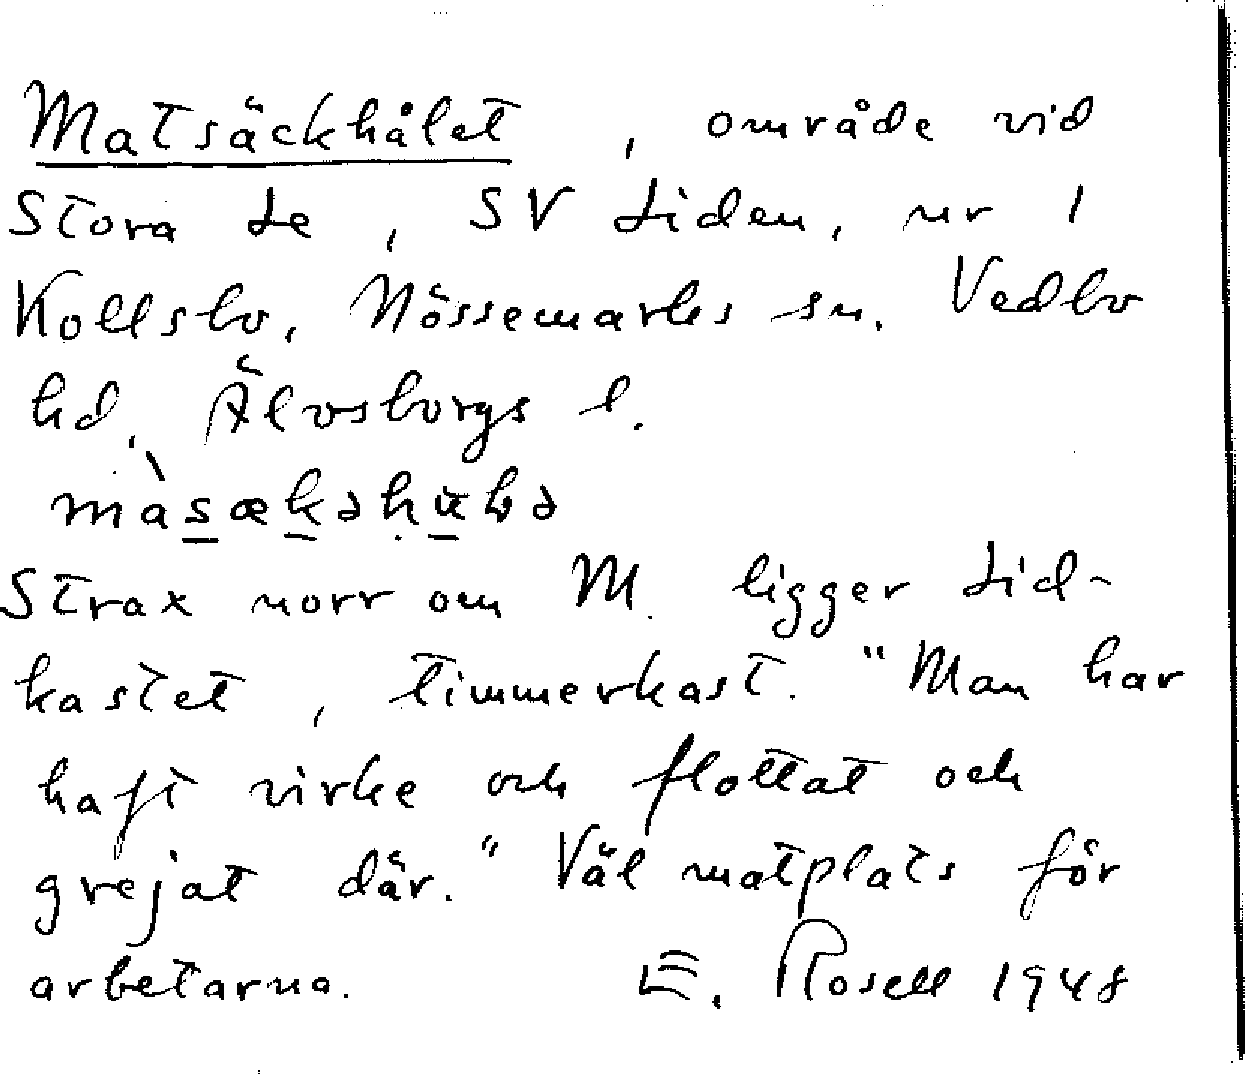 Matsäckhålet, område vid
Stora Le, SV Liden, nr 1
Kollsbo, Nössemarks sn. Vedbo
hd, Älvsborgs l.
Strax norr om M. ligger Lid-
kastet, timmerkast. "Man har
haft virke och flottat och
grejat där." Väl matplats för
arbetarna. E. Rosell 1948